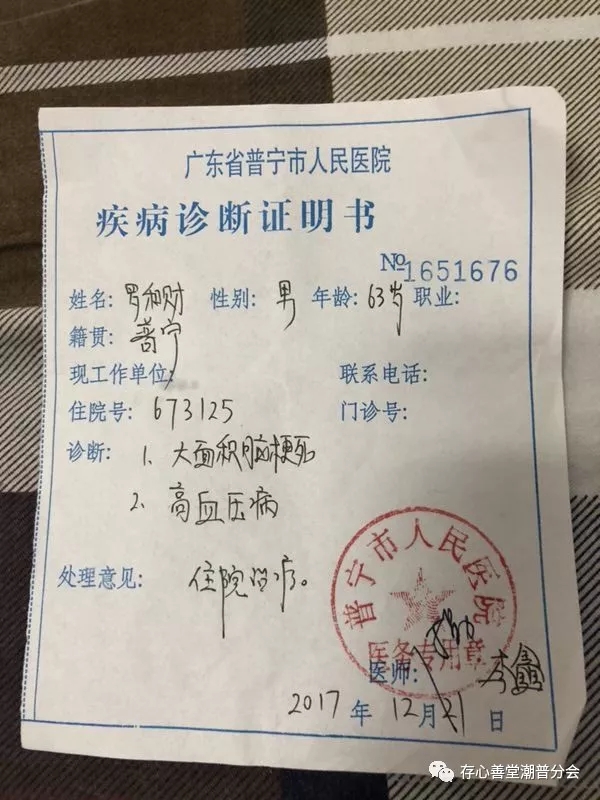 广东省普宁市人民医院
疾病诊断证明书
№1651676
姓名: 罗和财 性别: 男 年龄: 63岁 职业:
籍贯: 普宁
现工作单位:
联系电话:
住院号: 673125
门诊号:
诊断: 1、大面积脑梗死
2、高血压病
处理意见: 住院治疗。
普宁市人民医院
医务专用章
医师: 李鑫
2017年12月21日
存心善堂潮普分会